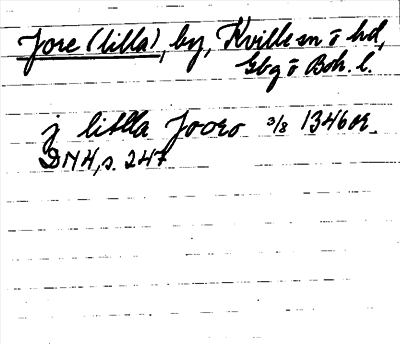 Jore (lilla), by, Kville sn o hd,
Gbg o Boh. l.
j litlla Jooro 3/8 1346 or.
DN 4, s. 247